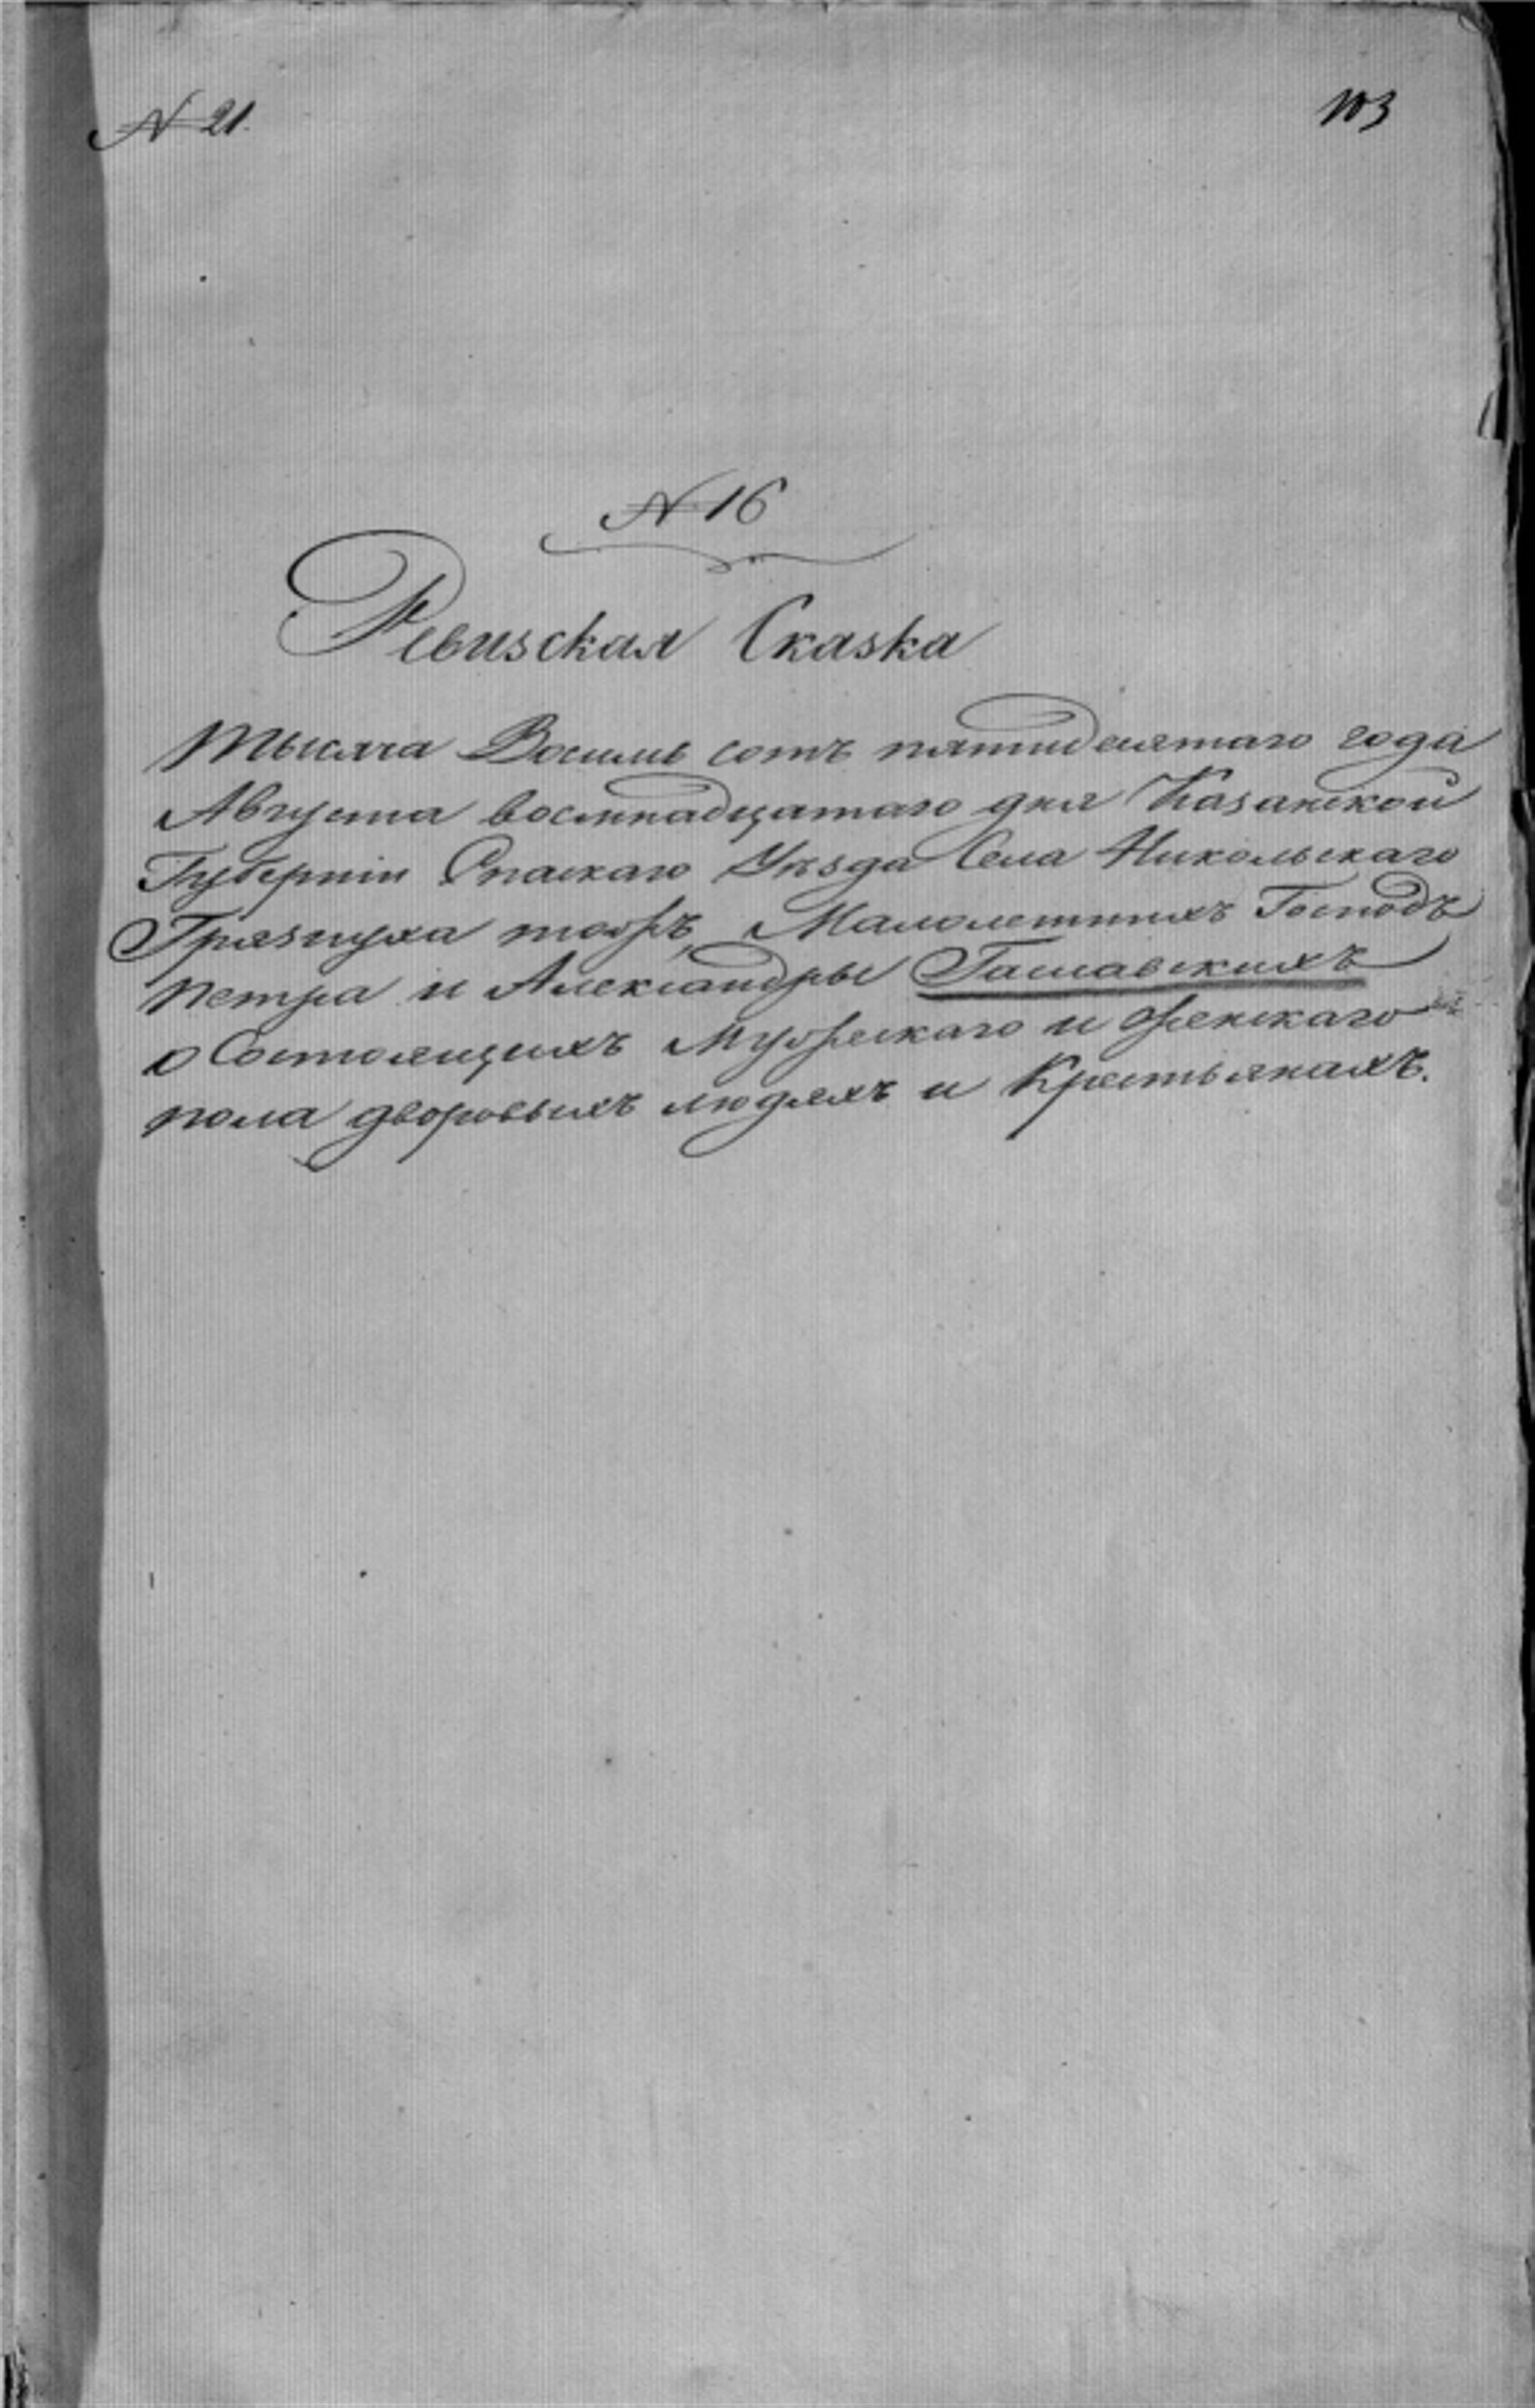 N 21.
103
N 16
Ревизская Сказка
Тысяча Восемь сотъ пятидесятаго года
Августа восемнадцатаго дня Казанской
Губернiи Спаскаго Уѣзда Села Никольскаго
Грязнуха тожъ, Малолетнихъ Господъ
Петра и Александры
о Состоящихъ Мужескаго и женскаго
пола дворовыхъ людяхъ и Крестьянахъ.